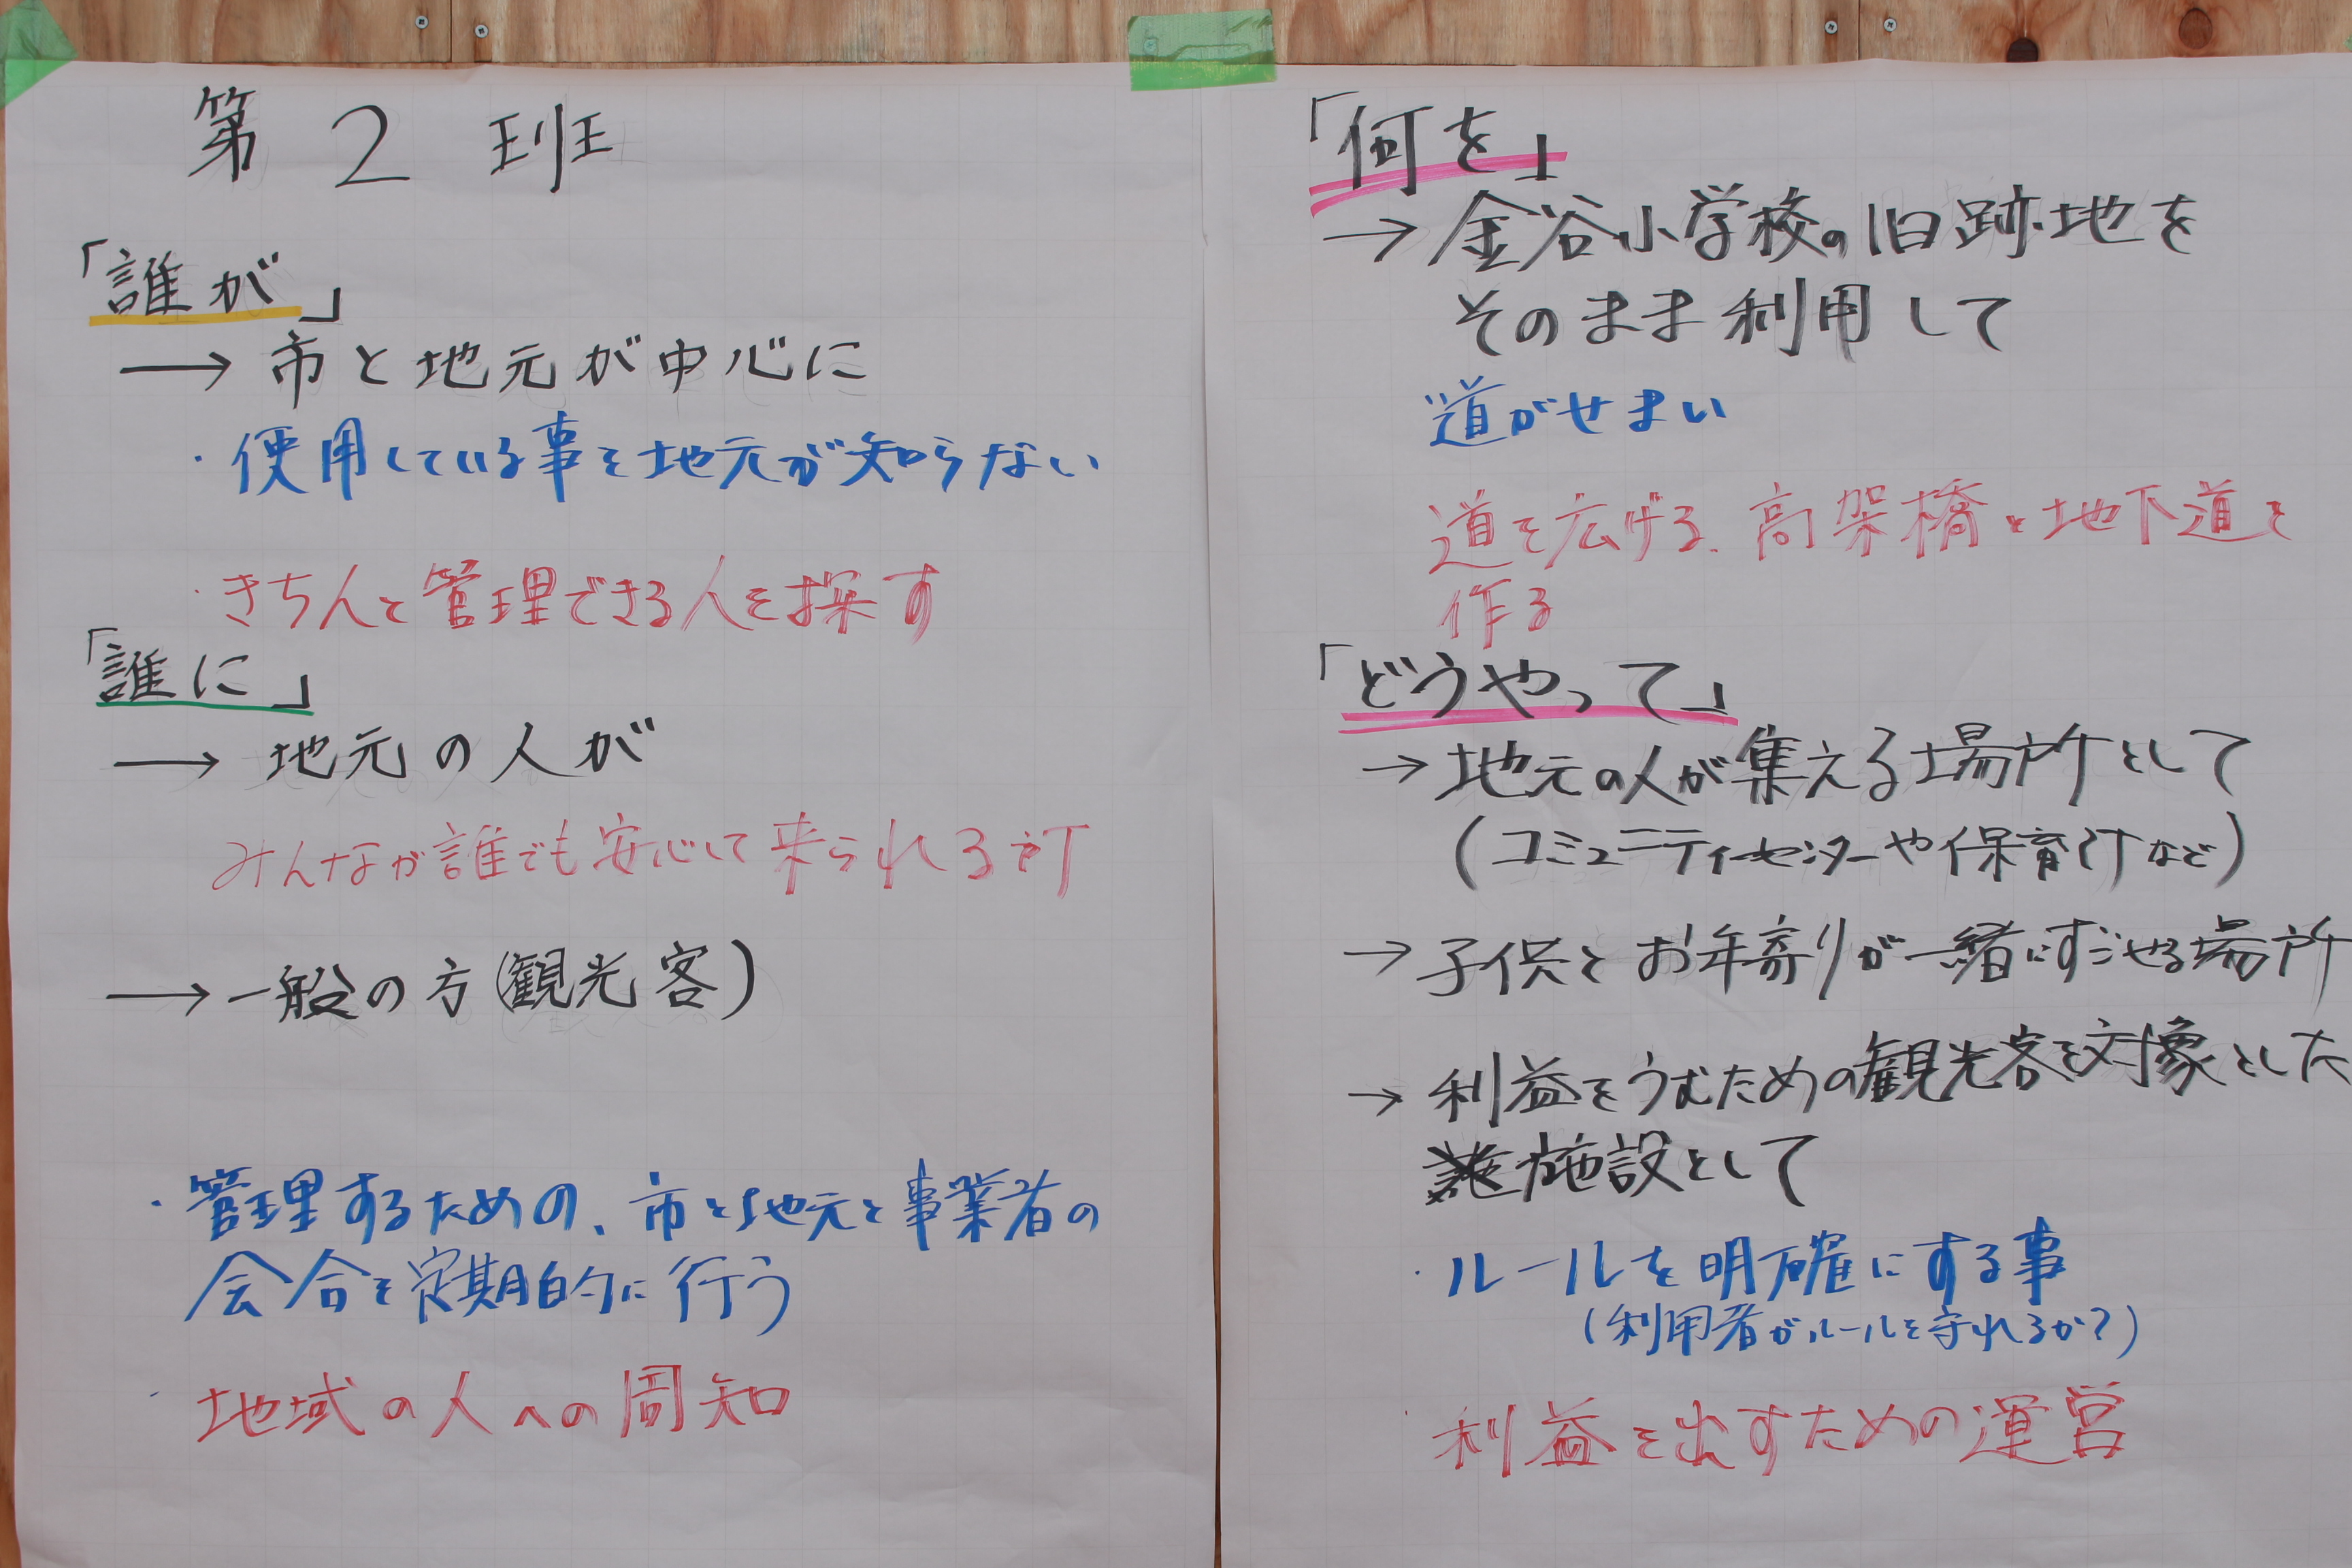 第2班
「誰が」
→ 市と地元が中心に
・使用している事を地元が知らない
・きちんと管理できる人を探す
「誰に」
→ 地元の人が
みんなが誰でも安心して来られる所
→ 一般の方(観光客)
・管理するための、市と地元と事業者の
会合を定期的に行う
・地域の人への周知
「何を」
→ 金谷小学校の旧跡地を
そのまま利用して
道がせまい
道を広げる、高架橋と地下道を
作る
「どうやって」
→ 地元の人が集える場所として
(コミュニティーセンターや保育所など)
→ 子供とお年寄りが一緒にすごせる場所
→ 利益をうむための観光客を対象とした
施設として
・ルールを明確にする事
(利用者がルールを守れるか?)
・利益を出すための運営